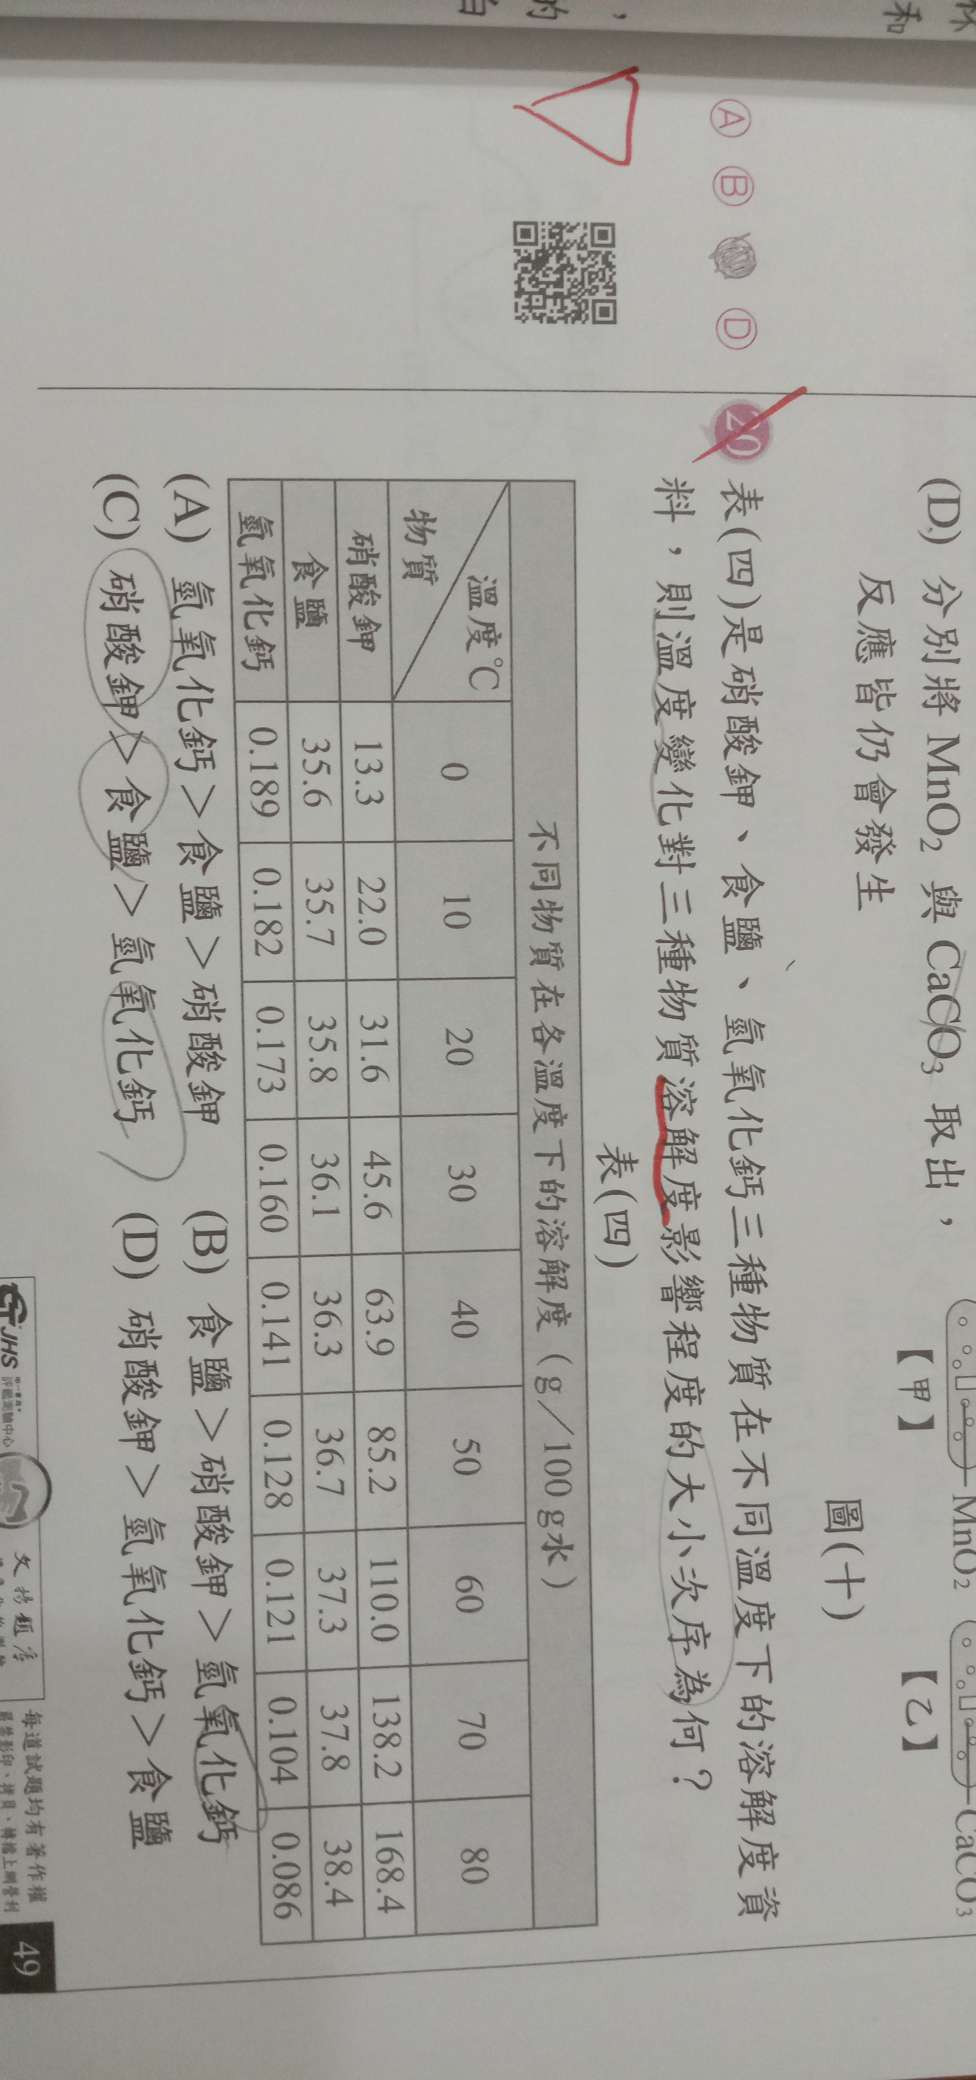 (D) 分別將 MnO₂ 與 CaCO₃ 取出，
反應皆仍會發生
MnO₂
CaCO₃
【甲】
【乙】
圖(十)
Ⓐ Ⓑ Ⓓ
20 表(四)是硝酸鉀、食鹽、氫氧化鈣三種物質在不同溫度下的溶解度資
料，則溫度變化對三種物質溶解度影響程度的大小次序為何？
表(四)
不同物質在各溫度下的溶解度（g／100 g水）
溫度℃ 物質 0 10 20 30 40 50 60 70 80
硝酸鉀 13.3 22.0 31.6 45.6 63.9 85.2 110.0 138.2 168.4
食鹽 35.6 35.7 35.8 36.1 36.3 36.7 37.3 37.8 38.4
氫氧化鈣 0.189 0.182 0.173 0.160 0.141 0.128 0.121 0.104 0.086
(A) 氫氧化鈣＞食鹽＞硝酸鉀 (B) 食鹽＞硝酸鉀＞氫氧化鈣
(C) 硝酸鉀＞食鹽＞氫氧化鈣 (D) 硝酸鉀＞氫氧化鈣＞食鹽
JHS
評鑑測驗中心
每道試題均有著作權
嚴禁影印、拷貝、轉檔上網營利
49
和
的